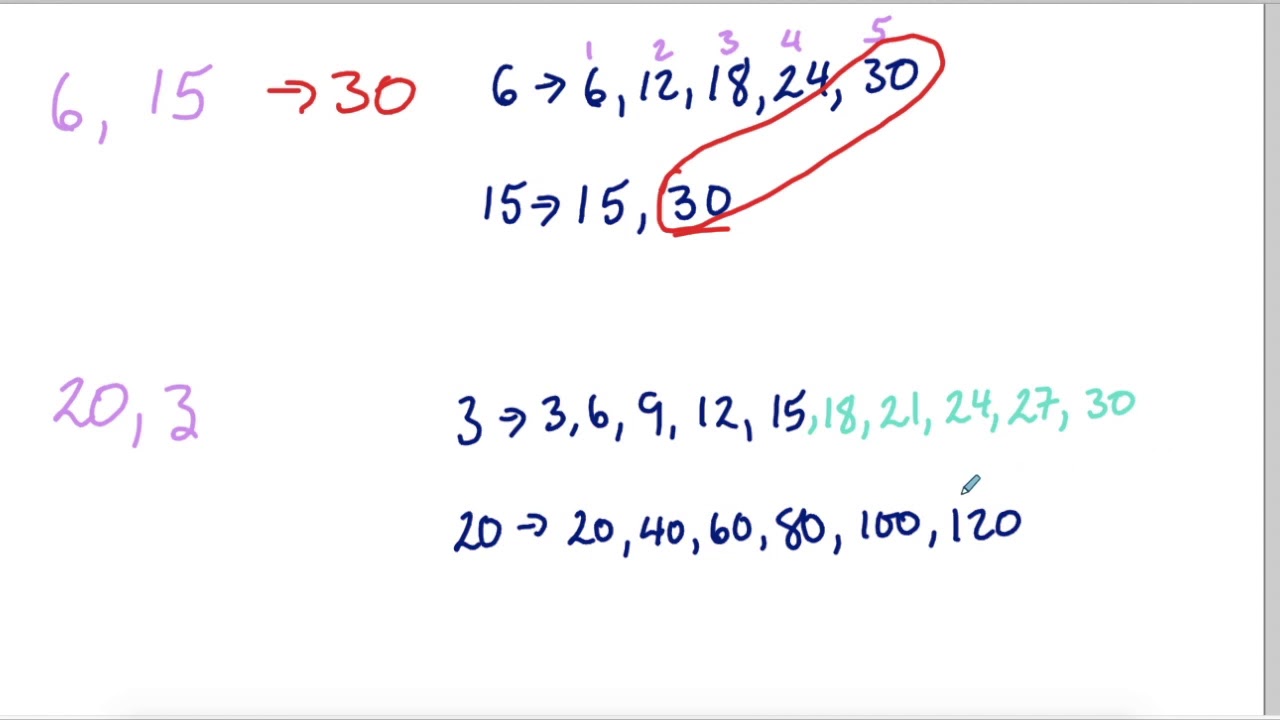 1 2 3 4 5
6, 15 → 30 6 → 6, 12, 18, 24, 30
15 → 15, 30
20, 3 3 → 3, 6, 9, 12, 15, 18, 21, 24, 27, 30
20 → 20, 40, 60, 80, 100, 120